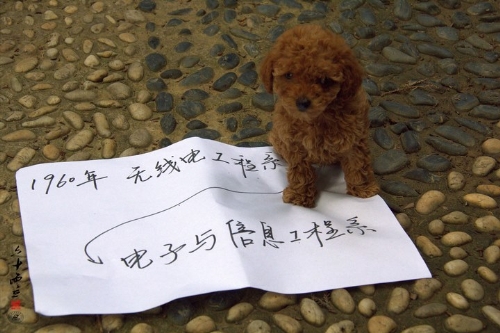 1960年 无线电工程系
电子与信息工程系